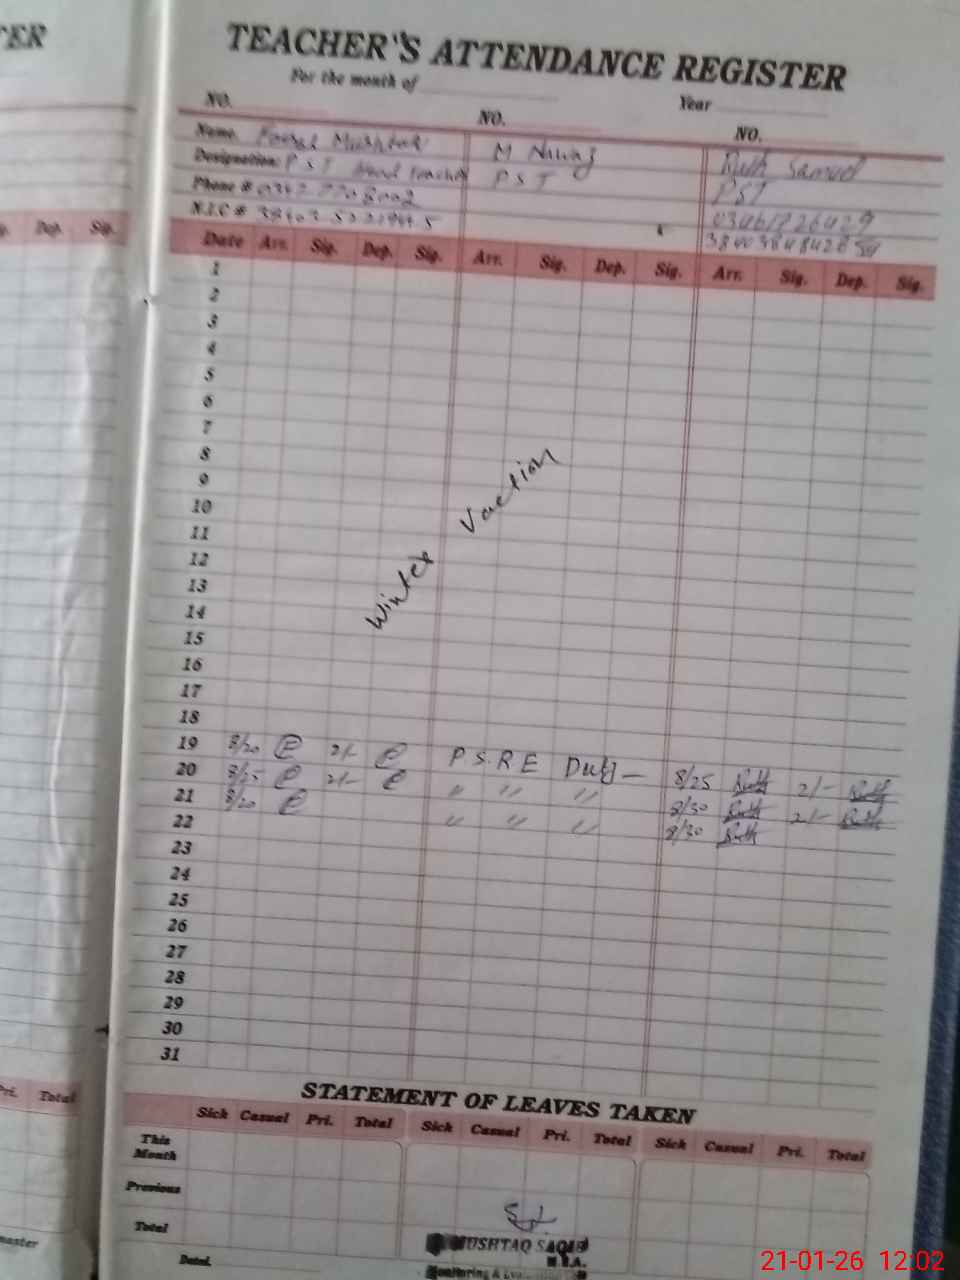 TER
TEACHER'S ATTENDANCE REGISTER
For the month of
Year
NO.
NO.
NO.
Name. Mushtaq
M Nawaz
Ruth Samuel
Designation: P S T Head Teacher
P S T
PST
Phone #
03461726429
N.I.C #
Dep. Sig.
Date Arr. Sig. Dep. Sig. Arr. Sig. Dep. Sig. Arr. Sig. Dep. Sig.
1
2
3
4
5
6
7
8
9
10
11
12
13
14
15
16
17
18
Winter Vaction
19 8/20 2/- P.S.R.E Duty — 8/25 Ruth 2/- Ruth
20 8/25 2/- " " " 8/30 Ruth 2/- Ruth
21 8/20 " " " 8/30 Ruth
22
23
24
25
26
27
28
29
30
31
STATEMENT OF LEAVES TAKEN
Pri. Total
Sick Casual Pri. Total Sick Casual Pri. Total Sick Casual Pri. Total
This Month
Previous
Total
Dated.
master
MUSHTAQ SAQIB
M.E.A.
Monitoring &
21-01-26 12:02